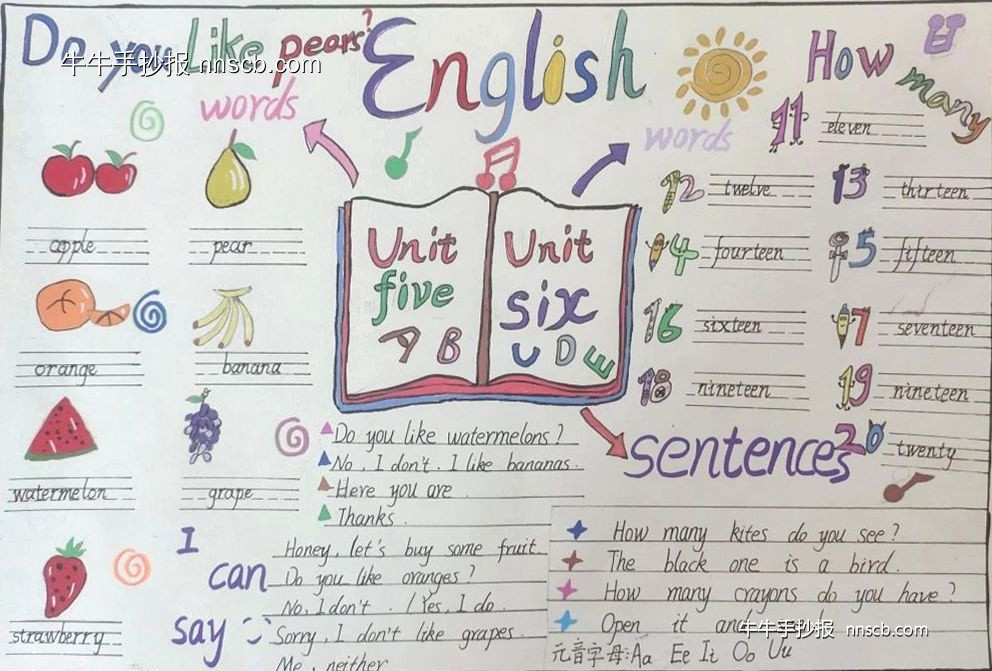 Do you Like pears?
English
How many
牛牛手抄报 nnscb.com
words
words
11 eleven
12 twelve
13 thirteen
14 fourteen
15 fifteen
16 sixteen
17 seventeen
18 nineteen
19 nineteen
20 twenty
apple
pear
orange
banana
watermelon
grape
strawberry
Unit
five
A B
Unit
six
C D E
Do you like watermelons?
No, I don't. I like bananas.
Here you are.
Thanks.
I
can
say
Honey, let's buy some fruit.
Do you like oranges?
No, I don't. / Yes, I do.
Sorry, I don't like grapes.
Me, neither
sentences
How many kites do you see?
The black one is a bird.
How many crayons do you have?
Open it and
牛牛手抄报 nnscb.com
元音字母: Aa Ee Ii Oo Uu